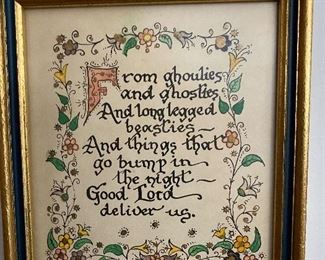 From ghoulies
and ghosties
And long legged
beasties~
And things that
go bump in
the night~
Good Lord
deliver us.